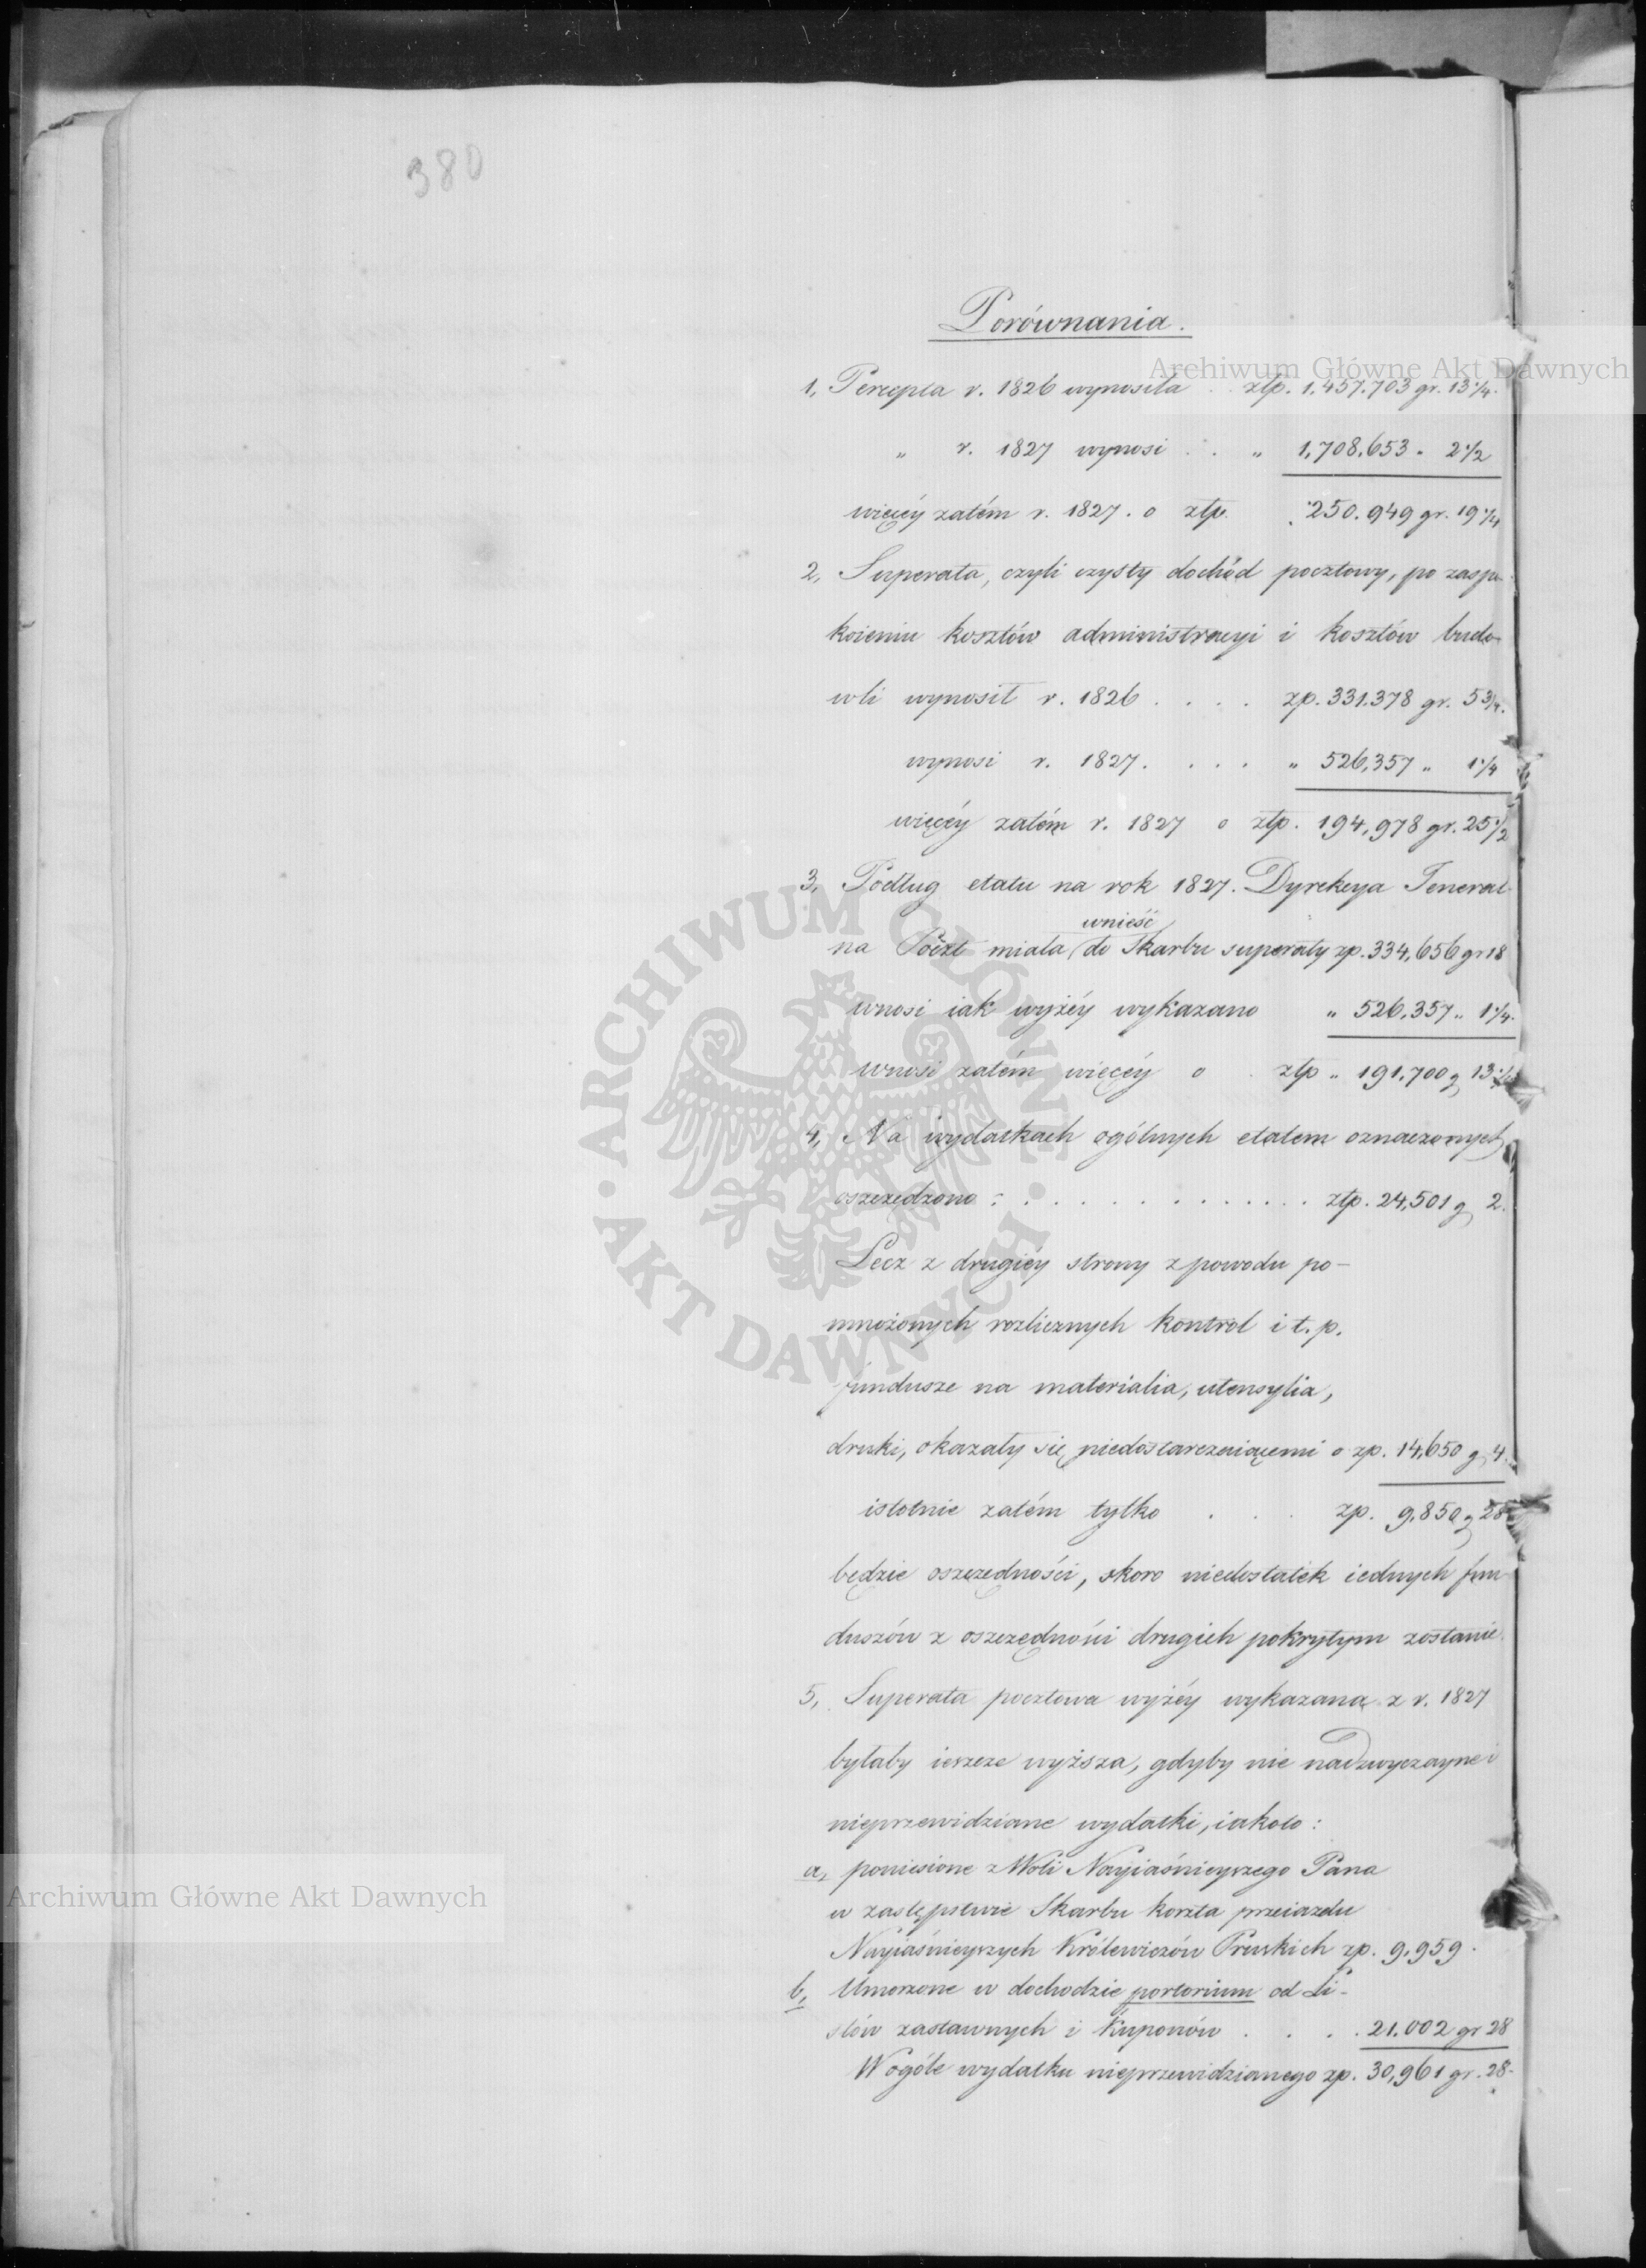 380
Porównania.
1, Percepta r. 1826 wynosiła . . złp. 1,457.703 gr. 13 1/4.
" r. 1827 wynosi . . " 1,708,653 " 2 1/2
więcéy zatém r. 1827. o złp. 250.949 gr. 19 1/4
2, Superata, czyli czysty dochód pocztowy, po zaspo-
koieniu kosztów administracyi i kosztów budo-
wli wynosił r. 1826 . . . . zp. 331.378 gr. 5 3/4.
wynosi r. 1827. . . . " 526,357 " 1 1/4
więcéy zatém r. 1827 o złp. 194,978 gr. 25 1/2
3, Podług etatu na rok 1827. Dyrekcya Jeneral-
wnieść
na Poczt miała do Skarbu superaty zp. 334,656 gr 18
wnosi iak wyżéy wykazano " 526,357 " 1 1/4.
wnosi zatém więcéy o . złp " 191,700 g 13 1/4
4, Na wydatkach ogólnych etatem oznaczonych
oszczędzono : . . . . . . . . . . . złp. 24,501 g 2.
Lecz z drugiéy strony z powodu po-
mnożonych rozlicznych kontrol i t. p.
fundusze na materialia, utensylia,
druki, okazały się niedostarczaiącemi o zp. 14,650 g 4.
istotnie zatém tylko . . . zp. 9,850 g 28
będzie oszczędności, skoro niedostatek iednych fun-
duszów z oszczędności drugich pokrytym zostanie.
5, Superata pocztowa wyżéy wykazana z r. 1827
byłaby ieszcze wyższa, gdyby nie nadzwyczayne i
nieprzewidziane wydatki, iakoto:
a, poniesione z Woli Nayiaśnieyszego Pana
w zastępstwie Skarbu koszta przeiazdu
Nayiaśnieyszych Królewiczów Pruskich zp. 9,959.
b, Umorzone w dochodzie portorium od Li-
stów zastawnych i Kuponów . . . . 21.002 gr 28
W ogóle wydatku nieprzewidzianego zp. 30,961 gr. 28.
Archiwum Główne Akt Dawnych
ARCHIWUM GŁÓWNE · AKT DAWNYCH ·
Archiwum Główne Akt Dawnych